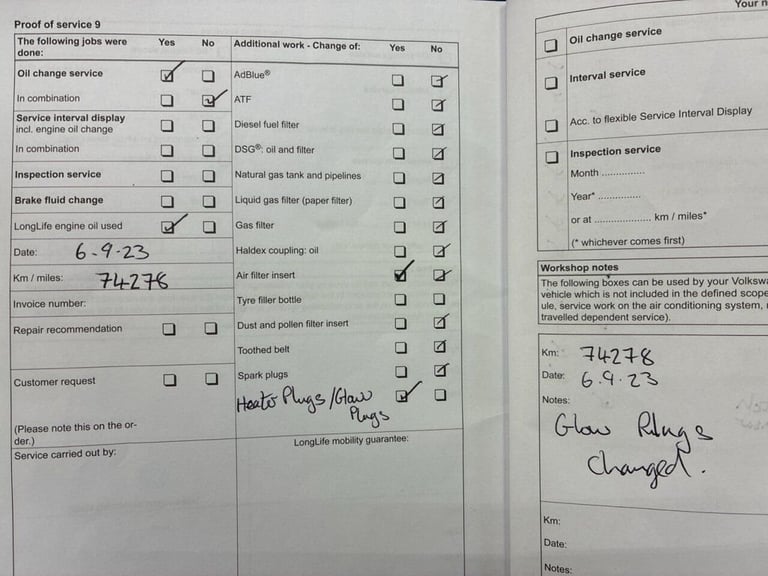 Proof of service 9
The following jobs were done: Yes No
Oil change service
In combination
Service interval display
incl. engine oil change
In combination
Inspection service
Brake fluid change
LongLife engine oil used
Date: 6.9.23
Km / miles: 74278
Invoice number:
Repair recommendation
Customer request
(Please note this on the or-
der.)
Service carried out by:
Additional work - Change of: Yes No
AdBlue®
ATF
Diesel fuel filter
DSG®: oil and filter
Natural gas tank and pipelines
Liquid gas filter (paper filter)
Gas filter
Haldex coupling: oil
Air filter insert
Tyre filler bottle
Dust and pollen filter insert
Toothed belt
Spark plugs
Heater Plugs/Glow
Plugs
LongLife mobility guarantee:
Your n
Oil change service
Interval service
Acc. to flexible Service Interval Display
Inspection service
Month ..............
Year* ..............
or at .................... km / miles*
(* whichever comes first)
Workshop notes
The following boxes can be used by your Volkswa
vehicle which is not included in the defined scope
ule, service work on the air conditioning system,
travelled dependent service).
Km: 74278
Date: 6.9.23
Notes:
Glow Plugs
changed.
Km:
Date:
Notes: